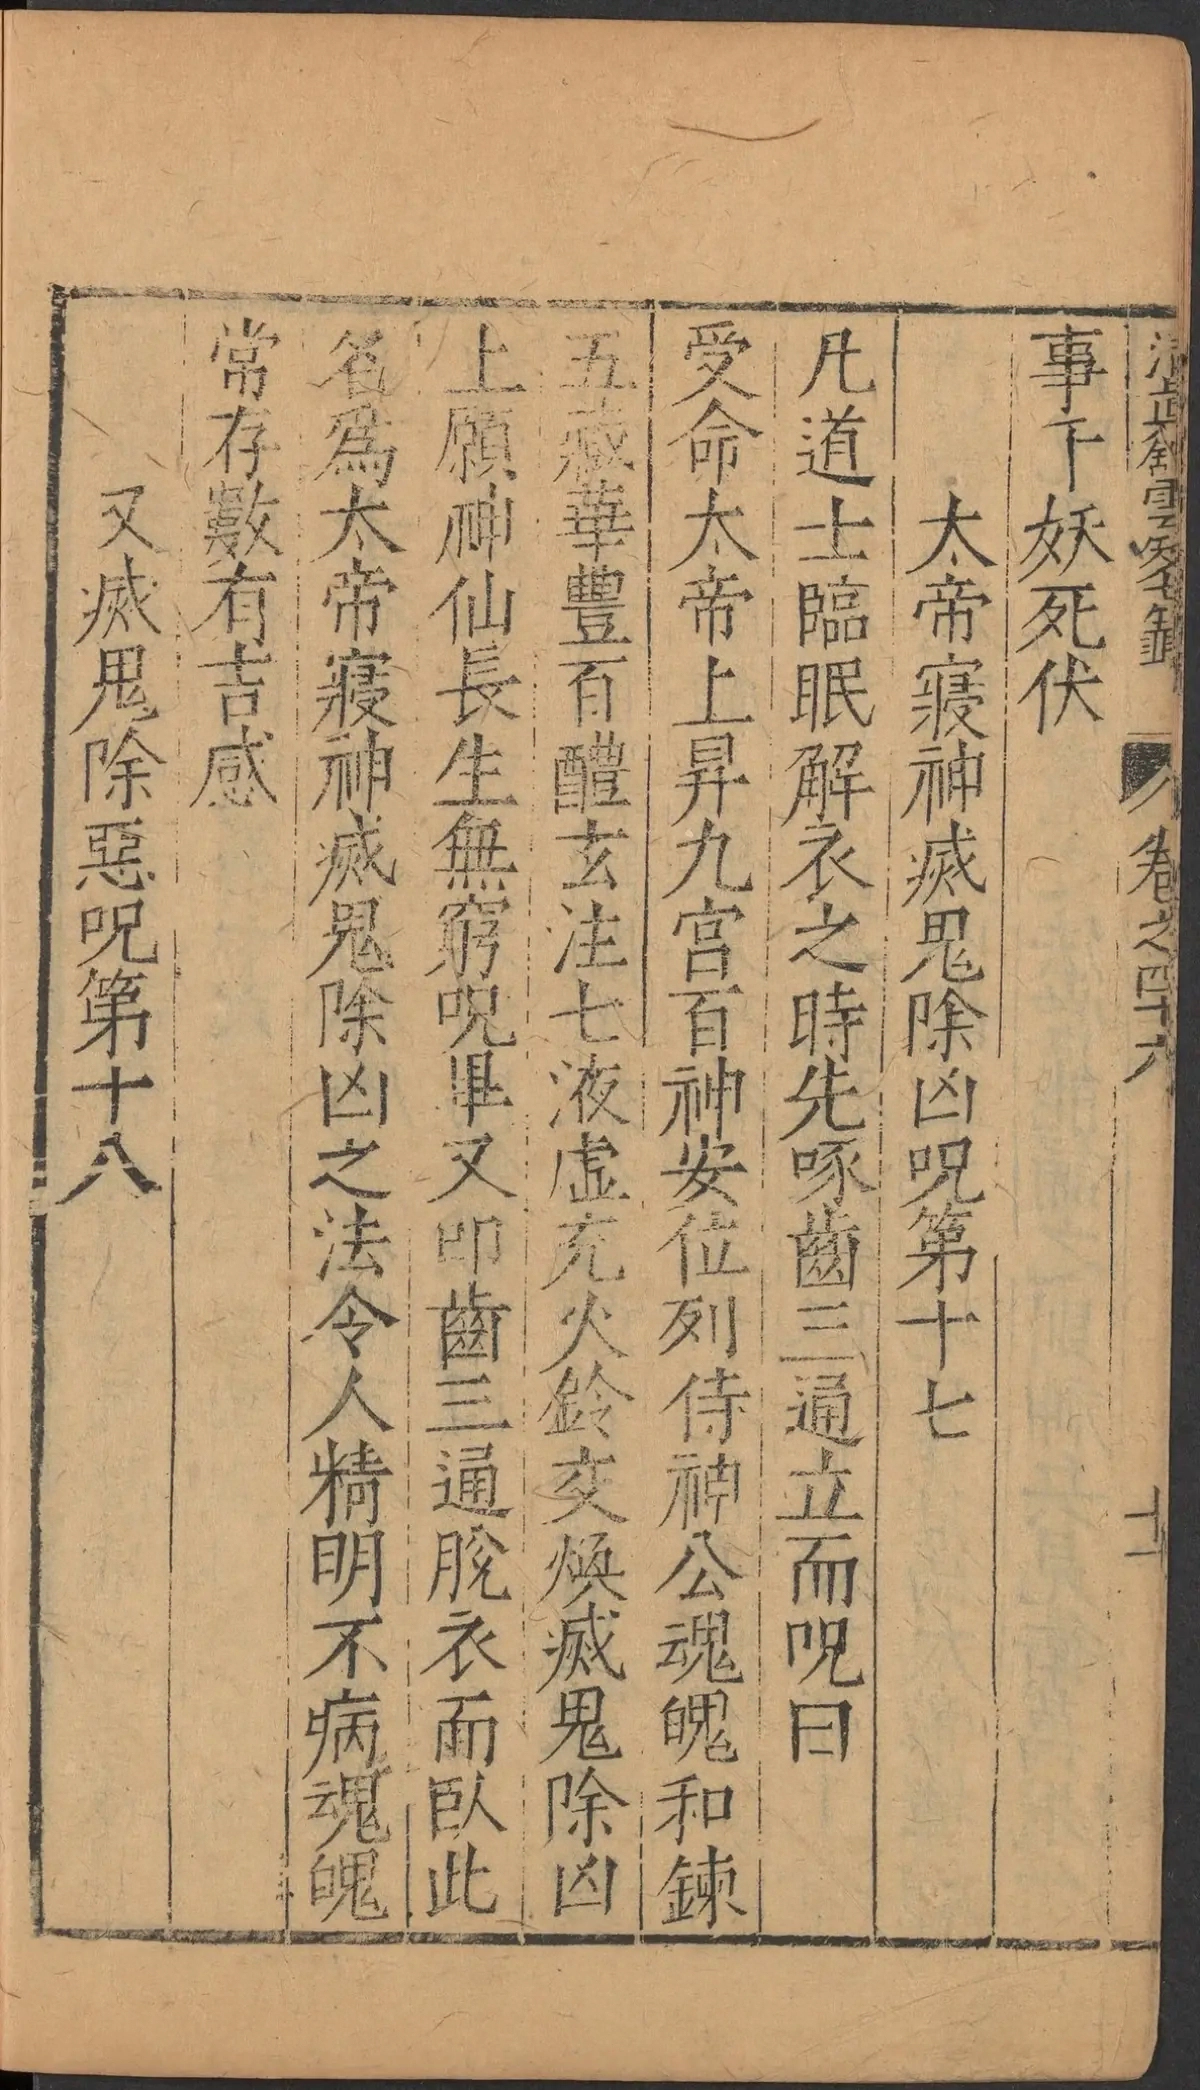 卷之四十六
十一
事午妖死伏
太帝寢神滅鬼除凶呪第十七
凡道士臨眠解衣之時先啄齒三通立而呪曰
受命太帝上昇九宮百神安位列侍神公魂魄和鍊
五藏華豐百醴玄注七液虛充火鈴交煥滅鬼除凶
上願神仙長生無窮呪畢又叩齒三通脫衣而臥此
名爲太帝寢神滅鬼除凶之法令人精明不病魂魄
常存數有吉感
又滅鬼除惡呪第十八